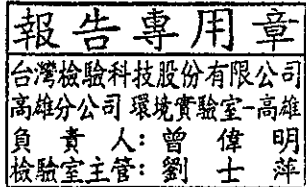 報告專用章
台灣檢驗科技股份有限公司
高雄分公司 環境實驗室-高雄
負責人：曾偉明
檢驗室主管：劉士萍